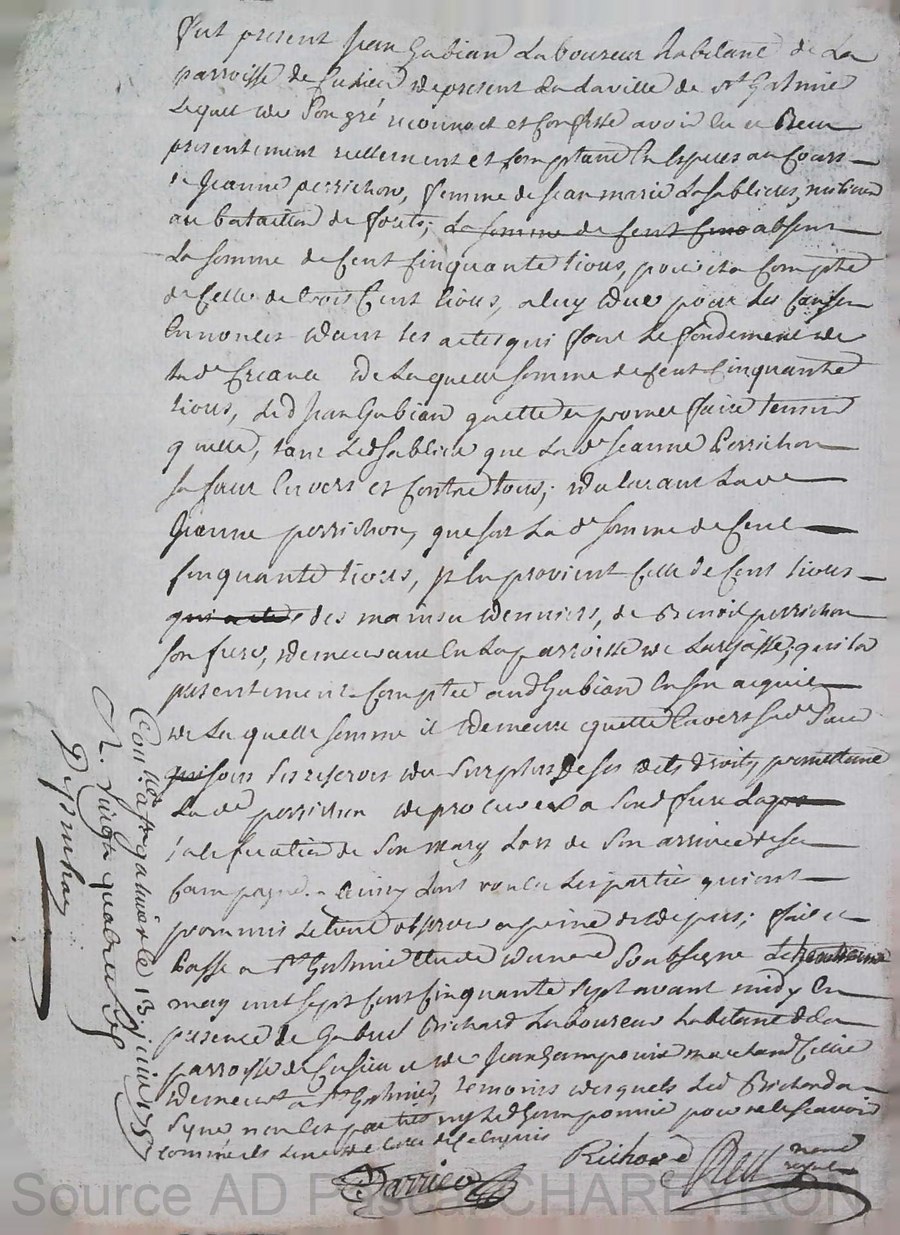 Fut present Jean Gubian Laboureur habitant de La
parroisse de Cuzieu de present en laville de st Galmier
Lequel de son gré reconnoit et Confesse avoir eu et Receu
presentement reellement et Comptant En Especes au Cours
de Jeanne perrichon, femme de Jean marie Lasablieres, milicien
au bataillon de forets; La somme de Cent Cinq absent
La somme de Cent Cinquante livres, pour et a Compte
de Celle de trois Cent livres, a luy due pour les Causes
Ennoncés dans les actes qui font Le fondement de
lade Creance de La quelle somme de Cent Cinquante
livres, Led Jean Gubian quitte et promet faire tenir
quitte, tant Led Sablier que La de Jeanne Perrichon
sa faut Envers et Contre tous; declarant Lade
Jeanne perrichon, que sur La de somme de Cent
Cinquante livres, Il En provient Celle de Cent livres
des mains et deniers, de Benoit perrichon
son frere, demeurant En La parroisse de Larajasse, qui la
presentement Comptée aud Gubian En son acquit
de La quelle somme il demeure quitte Envers sade
sans Ses reserves du Surplus de ses dits droits promettant
La de perrichon de procurer a Sond frere La
ratification de Son mary Lors de Son arrivée de sa
Campagne. Ainsy L'ont voulu Les parties qui ont
prommis Letout observer a peine de depens; fait et
Passé a St Galmier Etude du no Soubsigné Le
may mil sept Cent Cinquante sept avant midy En
presence de Gabriel Richard Laboureur habitant de la
parroisse de Cuzieu et de Jean marchand
demeurt a St Galmier, temoins desquels Led Richard a
Signé non Les parties ny Led pour ne le Scavoir
comme ils de Ce Enquis
Richard
Darrieu
notre
royal
Con. a st galmier le 13. juin 1757
R. vingt quatre sols